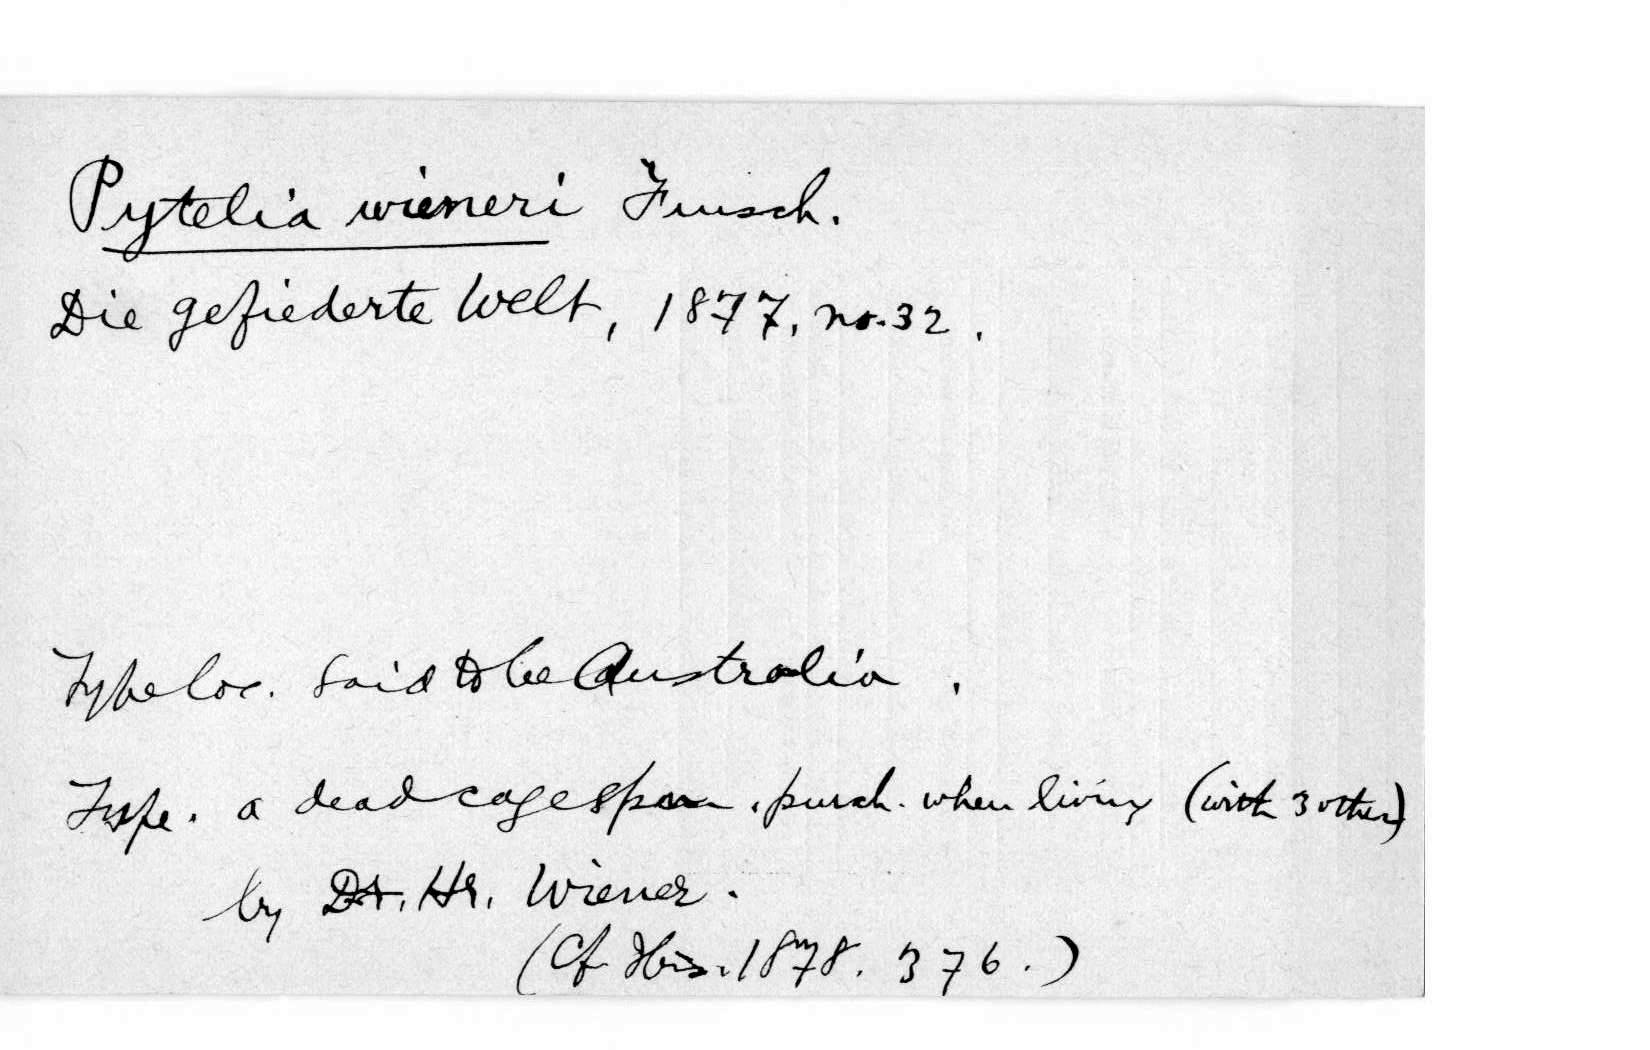 Pytelia wieneri Finsch.
Die gefiederte Welt, 1877, no. 32.
Type loc. said to be Australia.
Type. a dead cage spm. purch. when living (with 3 others)
by Dr. Hr. Wiener.
(Cf Ibis. 1878. 376.)